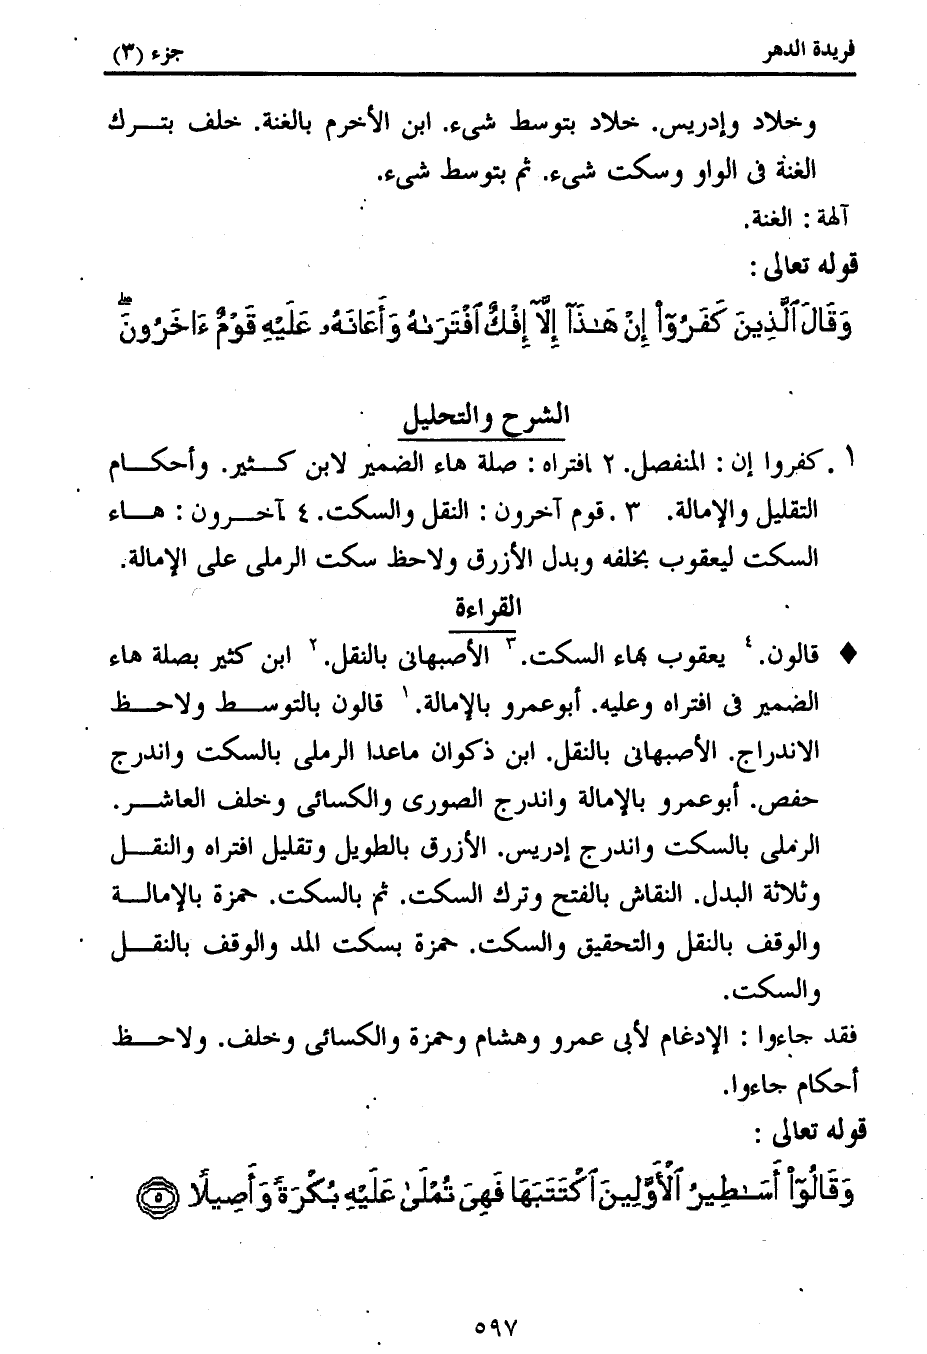 فريدة الدهر
جزء (٣)
وخلاد وإدريس. خلاد بتوسط شىء. ابن الأخرم بالغنة. خلف بتــرك
الغنة فى الواو وسكت شىء. ثم بتوسط شىء.
آلهة : الغنة.
قوله تعالى :
وَقَالَ ٱلَّذِينَ كَفَرُوٓاْ إِنْ هَـٰذَآ إِلَّآ إِفْكٌ ٱفْتَرَىٰهُ وَأَعَانَهُۥ عَلَيْهِ قَوْمٌ ءَاخَرُونَۖ
الشرح والتحليل
١. كفروا إن : المنفصل. ٢ افتراه : صلة هاء الضمير لابن كــثير. وأحكــام
التقليل والإمالة. ٣. قوم آخرون : النقل والسكت. ٤ آخــرون : هــاء
السكت ليعقوب بخلفه وبدل الأزرق ولاحظ سكت الرملى على الإمالة.
القراءة
♦ قالون. ٤ يعقوب بهاء السكت. ٣ الأصبهانى بالنقل. ٢ ابن كثير بصلة هاء
الضمير فى افتراه وعليه. أبوعمرو بالإمالة. ١ قالون بالتوســط ولاحــظ
الاندراج. الأصبهانى بالنقل. ابن ذكوان ماعدا الرملى بالسكت واندرج
حفص. أبوعمرو بالإمالة واندرج الصورى والكسائى وخلف العاشــر.
الرملى بالسكت واندرج إدريس. الأزرق بالطويل وتقليل افتراه والنقــل
وثلاثة البدل. النقاش بالفتح وترك السكت. ثم بالسكت. حمزة بالإمالــة
والوقف بالنقل والتحقيق والسكت. حمزة بسكت المد والوقف بالنقــل
والسكت.
فقد جاءوا : الإدغام لأبى عمرو وهشام وحمزة والكسائى وخلف. ولاحــظ
أحكام جاءوا.
قوله تعالى :
وَقَالُوٓاْ أَسَـٰطِيرُ ٱلْأَوَّلِينَ ٱكْتَتَبَهَا فَهِىَ تُمْلَىٰ عَلَيْهِ بُكْرَةً وَأَصِيلًا ۝٥
٥٩٧